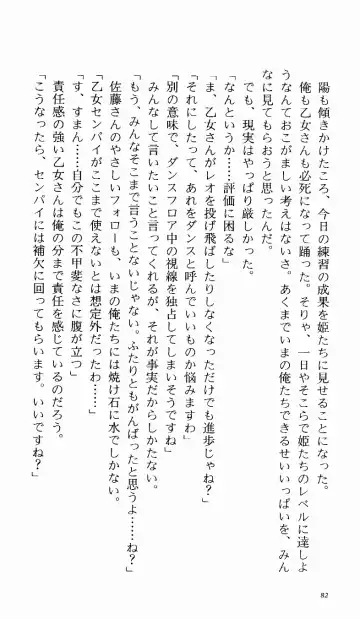 陽も傾きかけたころ、今日の練習の成果を姫たちに見せることになった。
俺も乙女さんも必死になって踊った。そりゃ、一日やそこらで姫たちのレベルに達しよ
うなんておこがましい考えはないさ。あくまでいまの俺たちできるせいいっぱいを、みん
なに見てもらおうと思ったんだ。
でも、現実はやっぱり厳しかった。
「なんというか……評価に困るな」
「ま、乙女さんがレオを投げ飛ばしたりしなくなっただけでも進歩じゃね?」
「それにしたって、あれをダンスと呼んでいいものか悩みますわ」
「別の意味で、ダンスフロア中の視線を独占してしまいそうですね」
みんなして言いたいこと言ってくれるが、それが事実だからしかたない。
「もう、みんなそこまで言うことないじゃない。ふたりともがんばったと思うよ……ね?」
佐藤さんのやさしいフォローも、いまの俺たちには焼け石に水でしかない。
「乙女センパイがここまで使えないとは想定外だったわ……」
「す、すまん……自分でもこの不甲斐なさに腹が立つ」
責任感の強い乙女さんは俺の分まで責任を感じているのだろう。
「こうなったら、センパイには補欠に回ってもらいます。いいですね?」
82